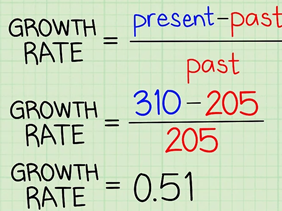 GROWTH RATE = present-past
past
GROWTH RATE = 310-205
205
GROWTH RATE = 0.51